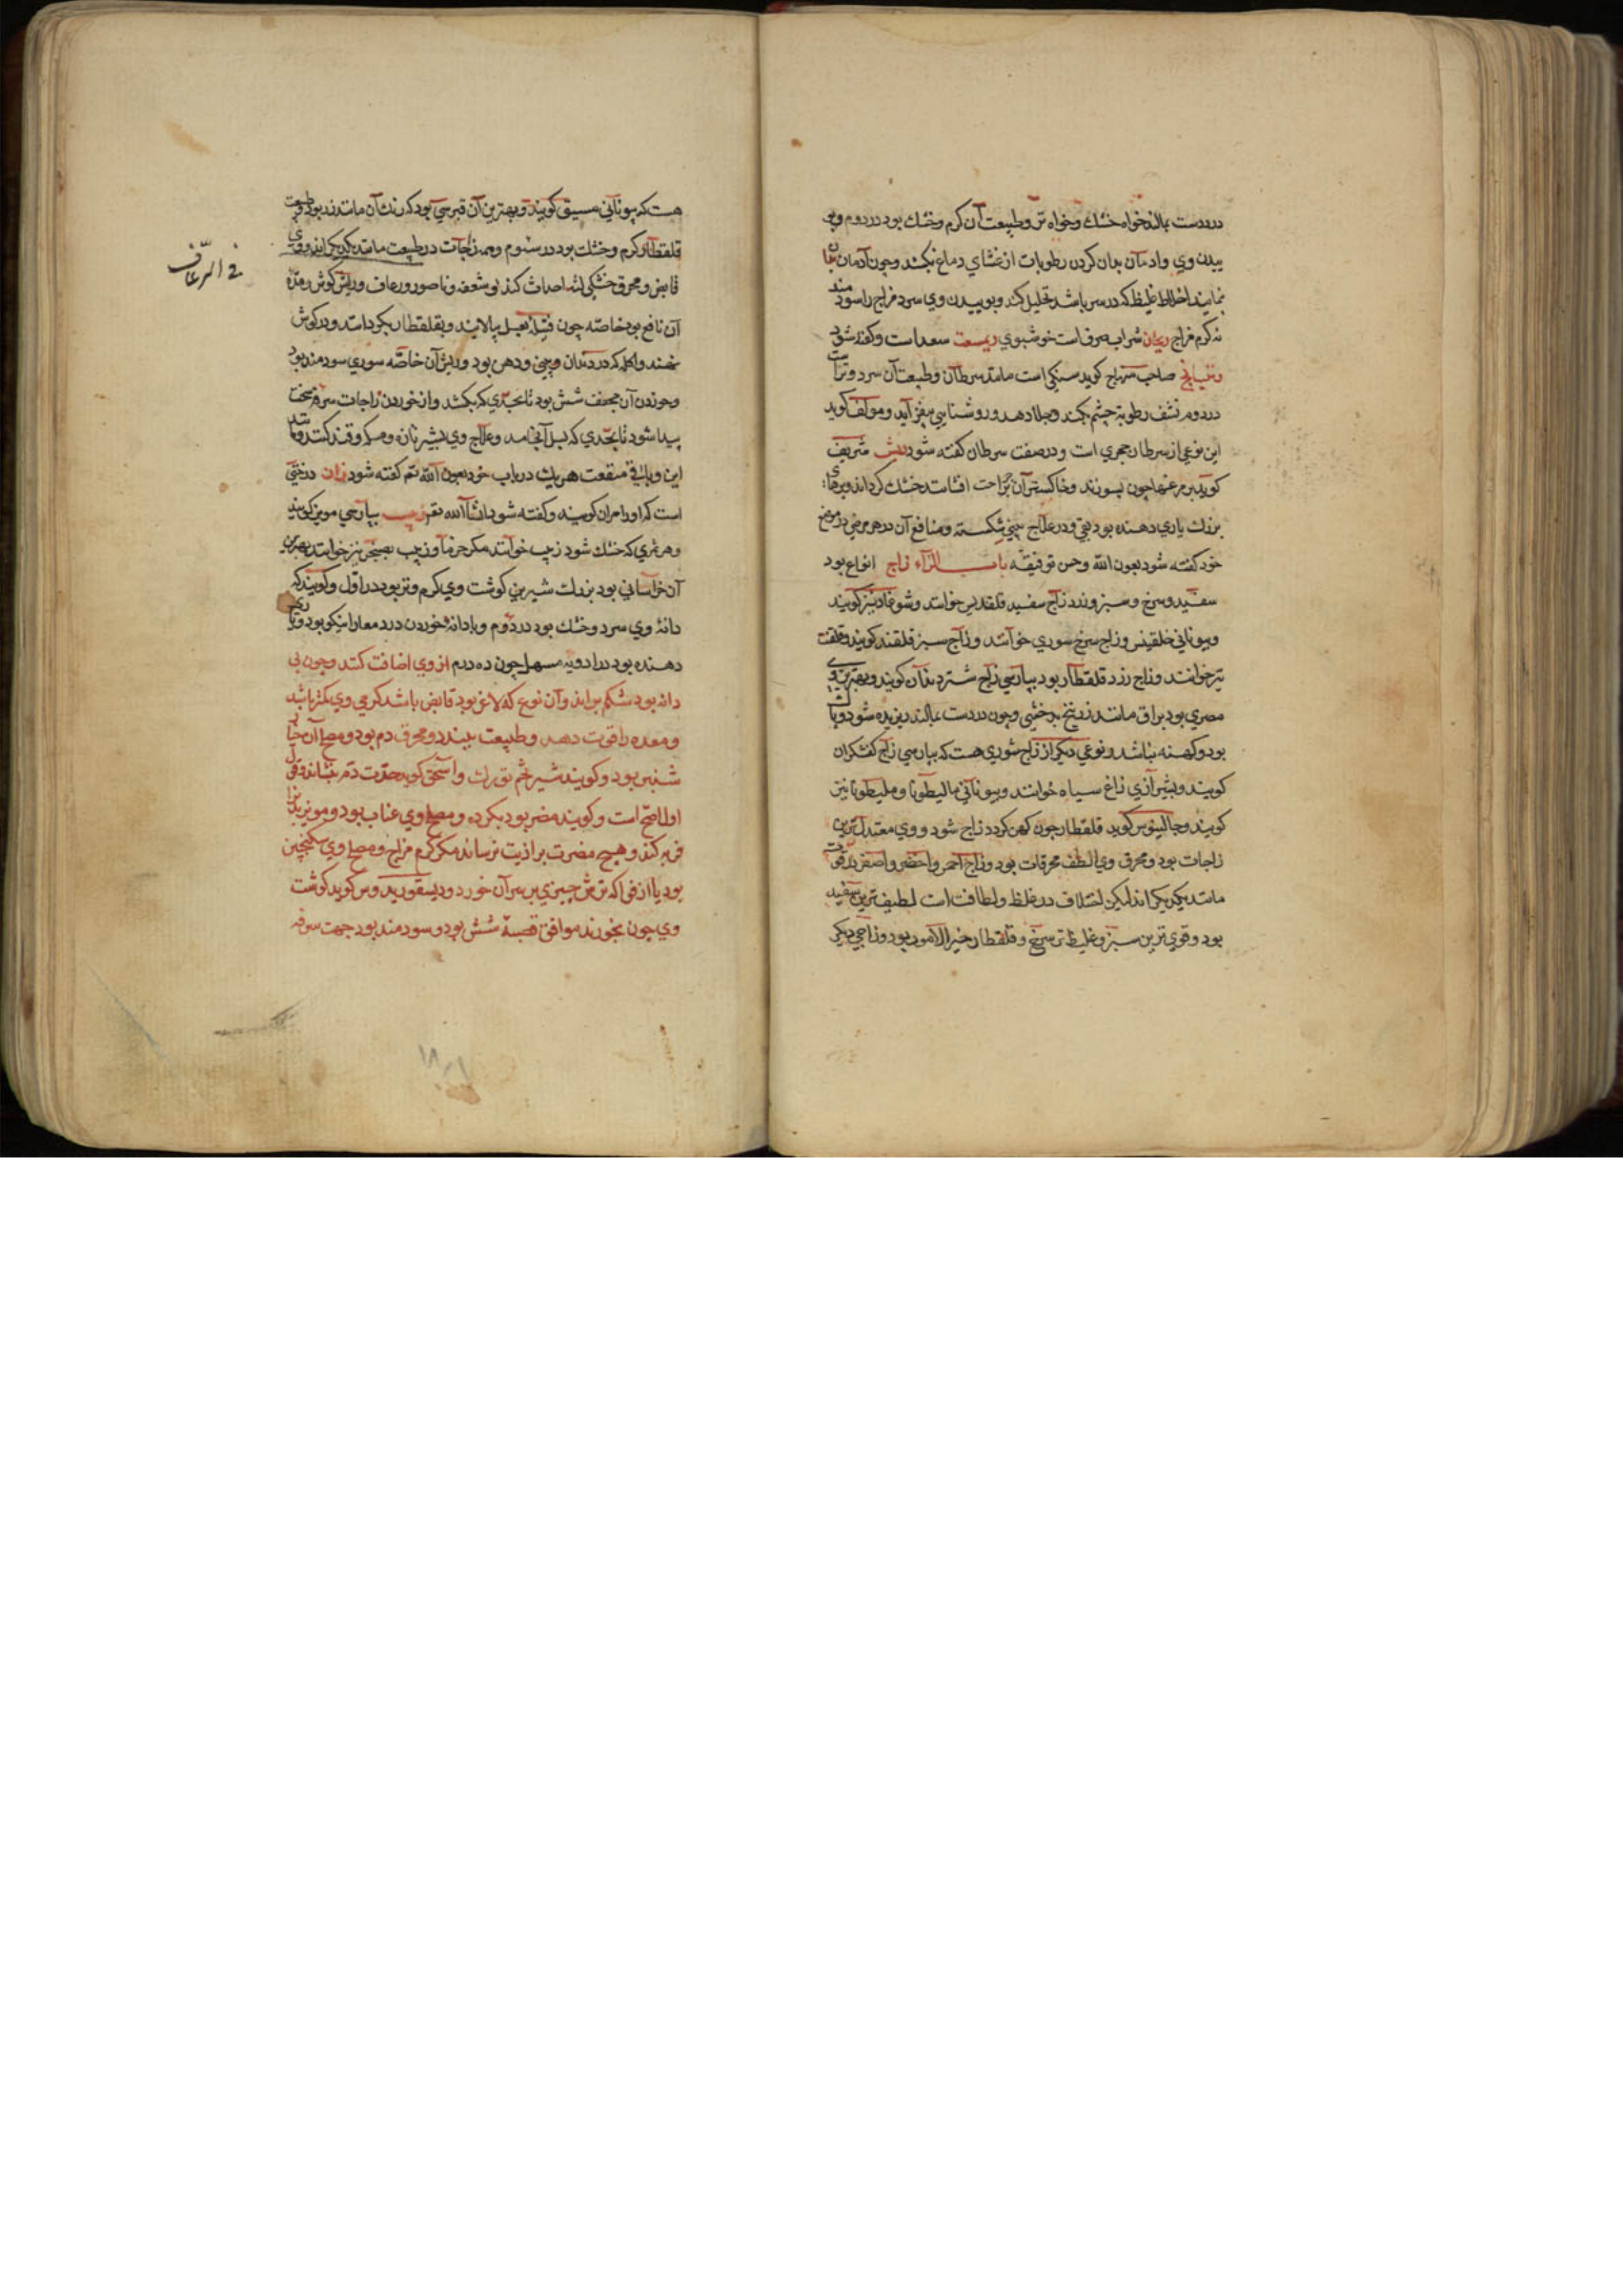 در دست بمالند خواه خشك و خواه تر و طبیعت آن کرم و خشك بود در دوم و بو
ییدن وی و ادمان بدان کردن رطوبات از غشای دماغ بکشد و چون آدمان بدان
نمایند اخلاط غلیظ که در سر باشد تحلیل کند و بوییدن وی سرد مزاج را سودمند
نه کرم مزاج ریحان شراب صرف است خوشبوی ریسعت سعد است و کفته شود
صاحب منهاج کوید سنکی است مانند سرطان و طبیعت آن سرد و تر است
در دوم نشف رطوبة چشم بکند و جلا دهد و روشنایی بیفزاید و مولف کوید
این نوعی از سرطان حجری است و در صفت سرطان کفته شود ریش شریف
کوید پر مرغها چون بسوزند و خاکستر آن بر جراحت افشانند خشك کرداند و پرهای
بزرك یاری دهنده بود بقی و در علاج بینی شکسته و منافع آن در هر مرغی در موضع
خود کفته شود بعون الله و حسن توفیقه باب الزاء زاج انواع بود
سفید و سرخ و سبز و زرد زاج سفید قلقدیس خوانند و شوغار نیز کویند
و بیونانی خلقیتس و زاج سرخ سوری خوانند و زاج سبز قلقند کویند و قلقنت
نیز خوانند و زاج زرد قلقطار بود بپارسی زاج شتر دندان کویند و بهترین وی
مصری بود براق مانند زرنیخ بدخشی و چون در دست بمالند ریزیده شود و پاك
بود و کهنه نباشد و نوعی دیکر از زاج شوری هست که بپارسی زاج کفشکران
کویند و بشیرازی زاغ سیاه خوانند و بیونانی مالیطونا و ملیطونا نیز
کویند و جالینوس کوید قلقطار چون کهن کردد زاج شود و وی معتدل ترین
زاجات بود و محرق وی الطف محرقات بود و زاج احمر و اخضر و اصفر در قوت
مانند یکدیکراند لیکن اختلاف در غلظ و لطافت است لطیف ترین سفید
بود و قوی ترین سبز و غلیظ تر سرخ و قلقطار خیر الامور بود و زاجی دیکر
هست که بیونانی مسیق کویند و بهترین آن قبرسی بود که رنك آن مانند زر بود و طبیعت
قلقطار کرم و خشك بود در سئوم و همه زاجات در طبیعت مانند یکدیکراند و وی
قابض و محرق خشکی لثه احداث کند بو شعفه و ناصور و رعاف و ریش کوش و مده
آن نافع بود خاصه چون فتیله بعسل بیالایند و بقلقطار بکردانند و در کوش
نهند و اکله که در دندان و بینی و دهن بود و ریش آن خاصّه سوری سودمند بود
و خوردن آن مجفف شش بود تا بحدی که بکشد و از خوردن زاجات سرفه سخت
پیدا شود تا بحدی که بسل انجامد و علاج وی بشیر تازه و مسکه و قند کنند و مانند
این و باقی منفعت هر یك در باب خود بعون الله تعم کفته شود زان درختی
است که او را مران کویند و کفته شود انشاالله تعم زبیب بپارسی مویز کویند
و هر ثمری که خشك شود زبیب خوانند مکر خرما و زبیب بعنجر نیز خوانند بهترین
آن خراسانی بود بزرك شیرین کوشت وی کرم و تر بود در اول و کویند که
دانهٔ وی سرد و خشك بود در دوم و با دانه خوردن درد معا را نیکو بود و یاری
دهنده بود در ادویه مسهل چون ده درم از وی اضافت کنند و چون بی
دانه بود شکم براند و آن نوع که لاغر بود قابض باشد کرمی وی بکثر باشد
و معده را قوت دهد و طبیعت ببندد و محرق دم بود و مصلح آن خیار
شنبر بود و کویند شیر تخم تورك و اسحق کوید حدّت دم بنشاند و قول
اول اصح است و کویند مضر بود بکرده و مصلح وی عناب بود و مویز بدن را
فربه کند و هیچ مضرت بر اذیت نرساند مکر کرم مزاج و مصلح وی سکنجبین
بود یا از فی اکه ترش چیزی بر سر آن خورد و دیسقوریدوس کوید کوشت
وی چون بخورند موافق قصبهٔ شش بود و سودمند بود جهت سرفه
فی الرعاف